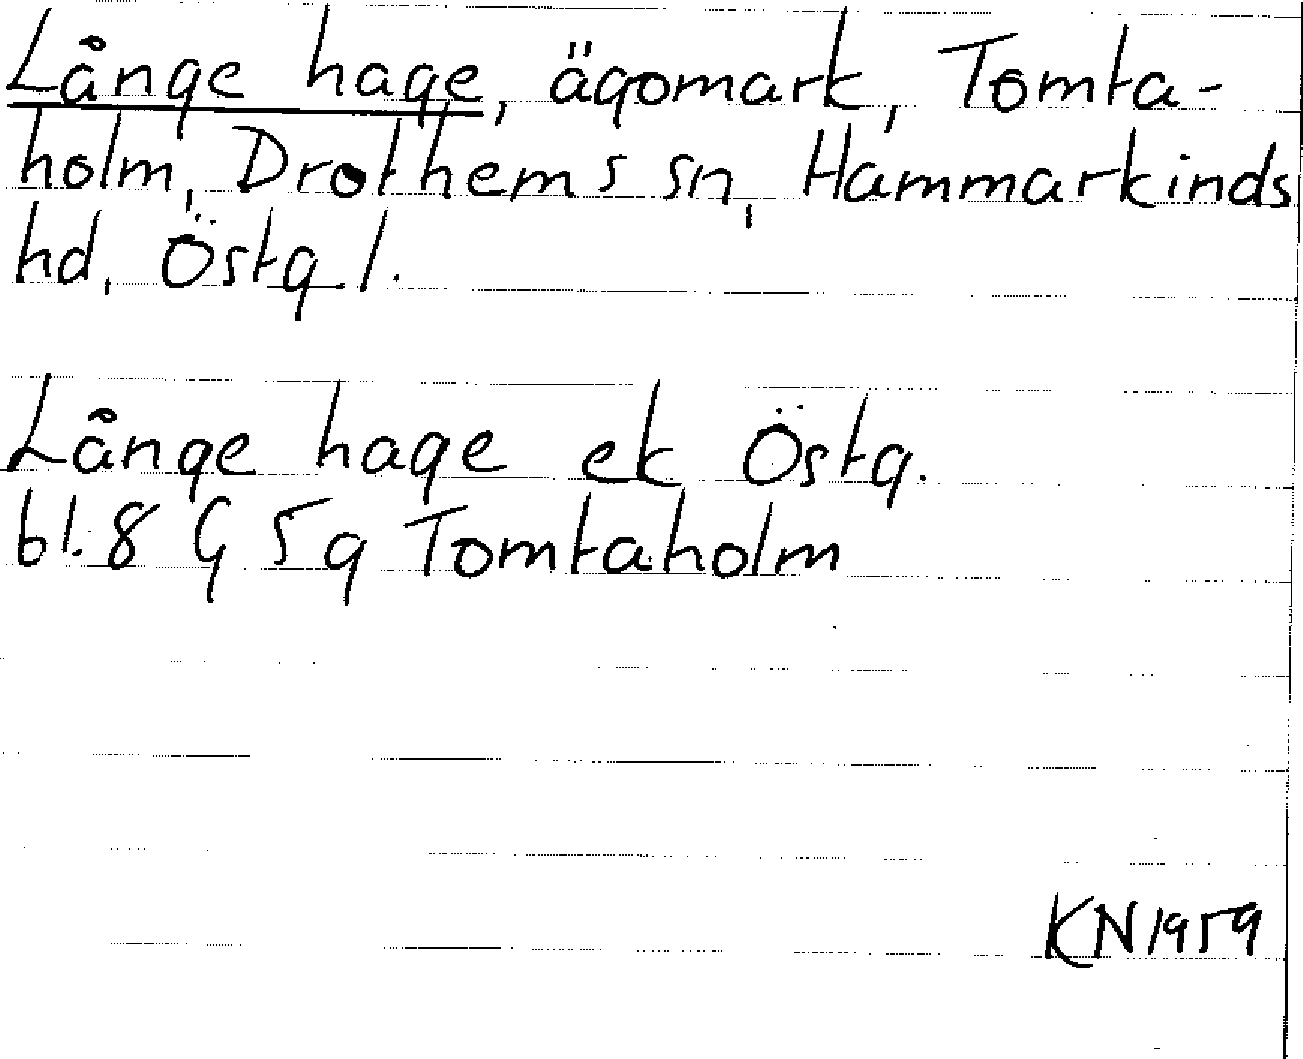 Långe hage, ägomark, Tomta-
holm, Drothems sn, Hammarkinds
hd, Östg.l.
Långe hage ek Östg.
bl. 8 G 5g Tomtaholm
KN 1959